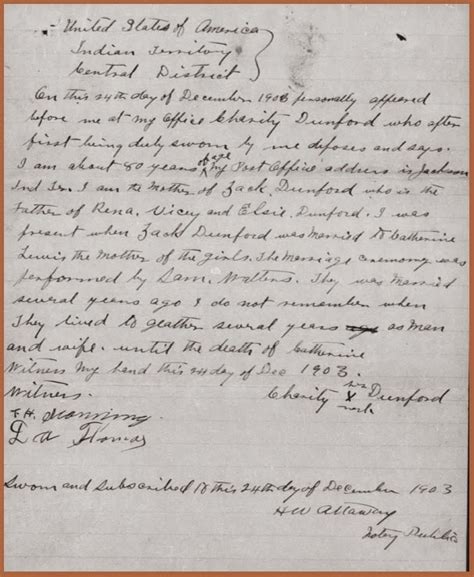 United States of America
Indian Territory
Central District
On this 24th day of December 1903 personally appeared
before me at my Office Charity Dunford who after
first being duly sworn by me deposes and says.
I am about 80 years of age My Post Office address is Jackson
Ind. Ter. I am the Mother of Zack Dunford who is the
Father of Rena, Vicey and Elsie Dunford. I was
present when Zack Dunford was married to Catherine
Lewis the Mother of the girls. The Marriage ceremony was
performed by Sam. Walters. They was married
several years ago I do not remember when
They lived to geather several years ago as man
and wife. until the death of Catherine
Witness My hand this 24 day of Dec 1903.
Witness. Charity X Dunford
mark
T.H. Manning
Thomas
Sworn and subscribed to this 24th day of December 1903
HW Attaway
Notary Public